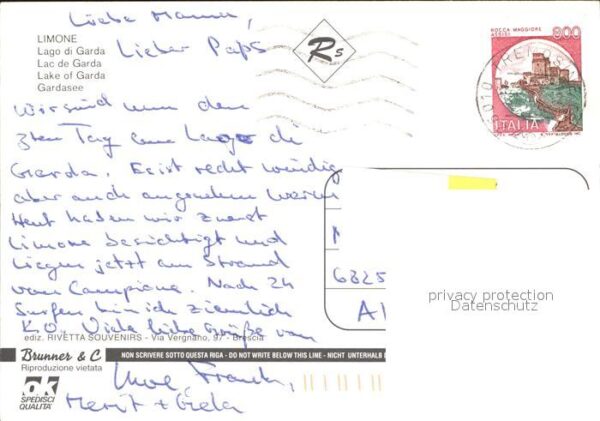 Liebe Mamm,
Lieber Paps
LIMONE
Lago di Garda
Lac de Garda
Lake of Garda
Gardasee
Rs
ROCCA MAGGIORE
ASSISI
800
ITALIA
Wir sind nun den
3ten Tag am Lago di
Garda. Es ist recht windig
aber auch angenehm warm
Heut haben wir zuerst
Limone besichtigt und
liegen jetzt am Strand
von Campione. Nach 2h
Surfen bin ich ziemlich
K.O. Viele liebe Grüße von
6325
privacy protection
Datenschutz
ediz. RIVETTA SOUVENIRS - Via Vergnano, 97 - Brescia
Brunner & C
Riproduzione vietata
NON SCRIVERE SOTTO QUESTA RIGA - DO NOT WRITE BELOW THIS LINE - NICHT UNTERHALB
OK
SPEDISCI
QUALITA'
Frank,